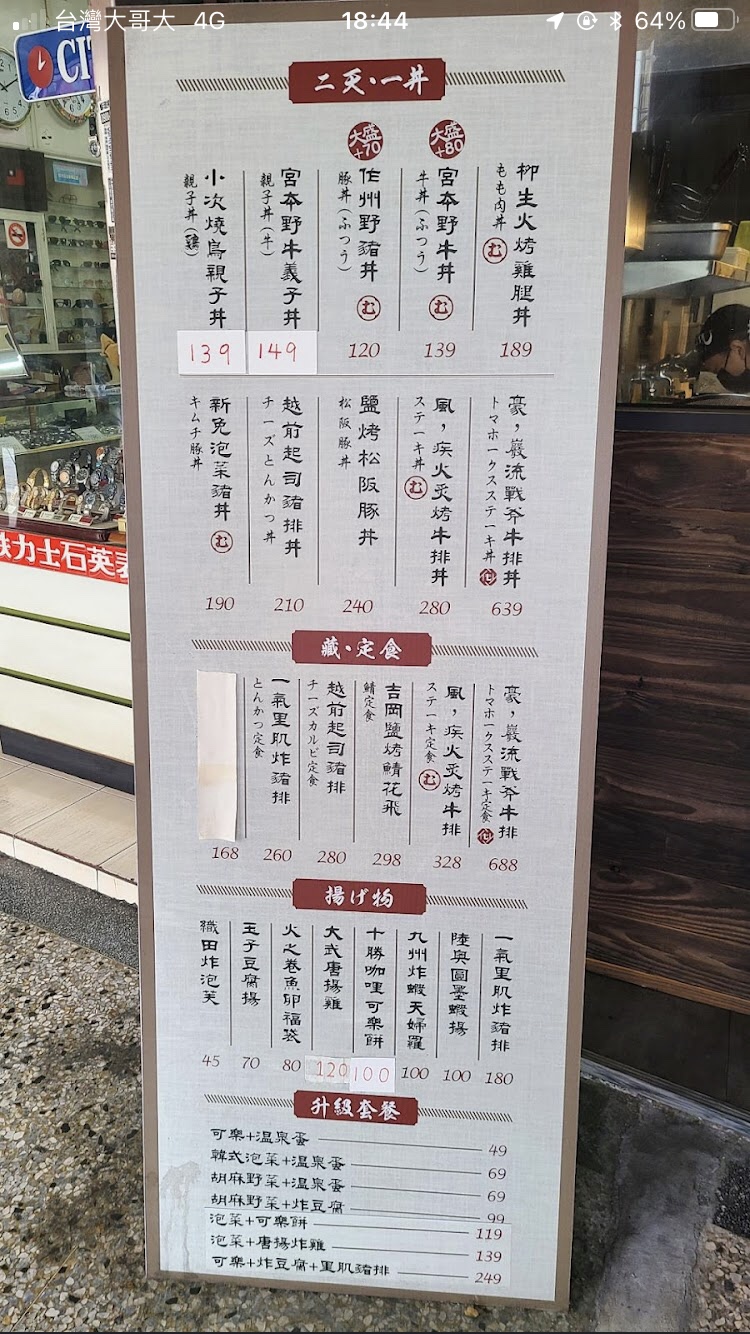 台灣大哥大 4G 18:44 64%
CI
二天・一丼
柳生火烤雞腿丼
もも肉丼 む
189
大盛+80
宮本野牛丼
牛丼(ふつう) む
139
大盛+70
作州野豬丼
豚丼(ふつう) む
120
宮本野牛義子丼
親子丼(牛)
149
小次燒鳥親子丼
親子丼(鶏)
139
豪,巖流戰斧牛排丼
トマホークスステーキ丼
639
風,疾火炙烤牛排丼
ステーキ丼 む
280
鹽烤松阪豚丼
松阪豚丼
240
越前起司豬排丼
チーズとんかつ丼
210
新免泡菜豬丼
キムチ豚丼 む
190
鉄力士石英表
藏・定食
豪,巖流戰斧牛排
トマホークスステーキ定食
688
風,疾火炙烤牛排
ステーキ定食 む
328
吉岡鹽烤鯖花飛
鯖定食
298
越前起司豬排
チーズカルビ定食
280
一氣里肌炸豬排
とんかつ定食
260
168
揚げ物
一氣里肌炸豬排
180
陸奧圓墨蝦揚
100
九州炸蝦天婦羅
100
十勝咖哩可樂餅
100
大武唐揚雞
120
火之卷魚卵福袋
80
玉子豆腐揚
70
織田炸泡芙
45
升級套餐
可樂+溫泉蛋 49
韓式泡菜+溫泉蛋 69
胡麻野菜+溫泉蛋 69
胡麻野菜+炸豆腐 99
泡菜+可樂餅 119
泡菜+唐揚炸雞 139
可樂+炸豆腐+里肌豬排 249